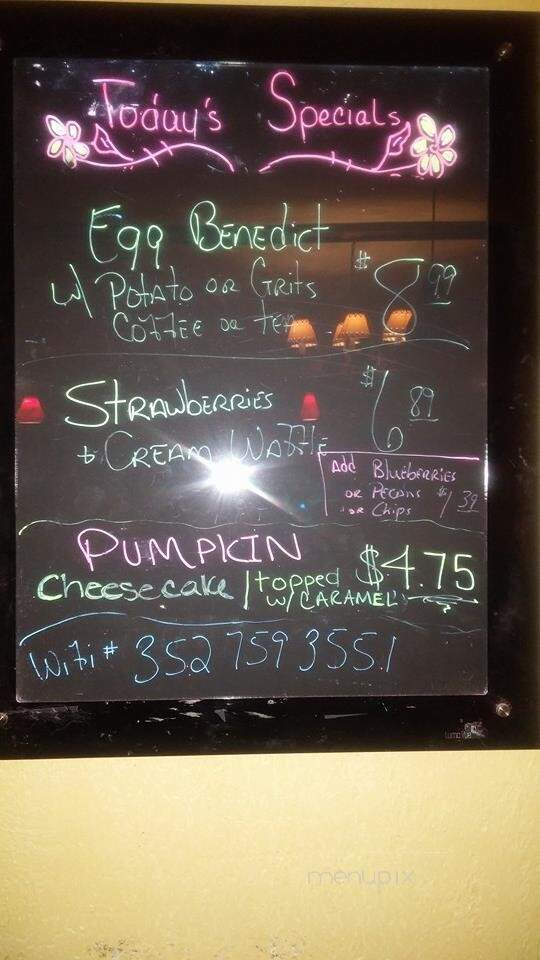 Today's Specials
Egg Benedict
w/ Potato or Grits
Coffee or Tea
$8.99
Strawberries
+ Cream Waffle
$6.89
Add Blueberries
or Pecans $1.39
or Chips
PUMPKIN
Cheesecake / topped
w/ CARAMEL
$4.75
Wifi # 352 759 3551
menupix